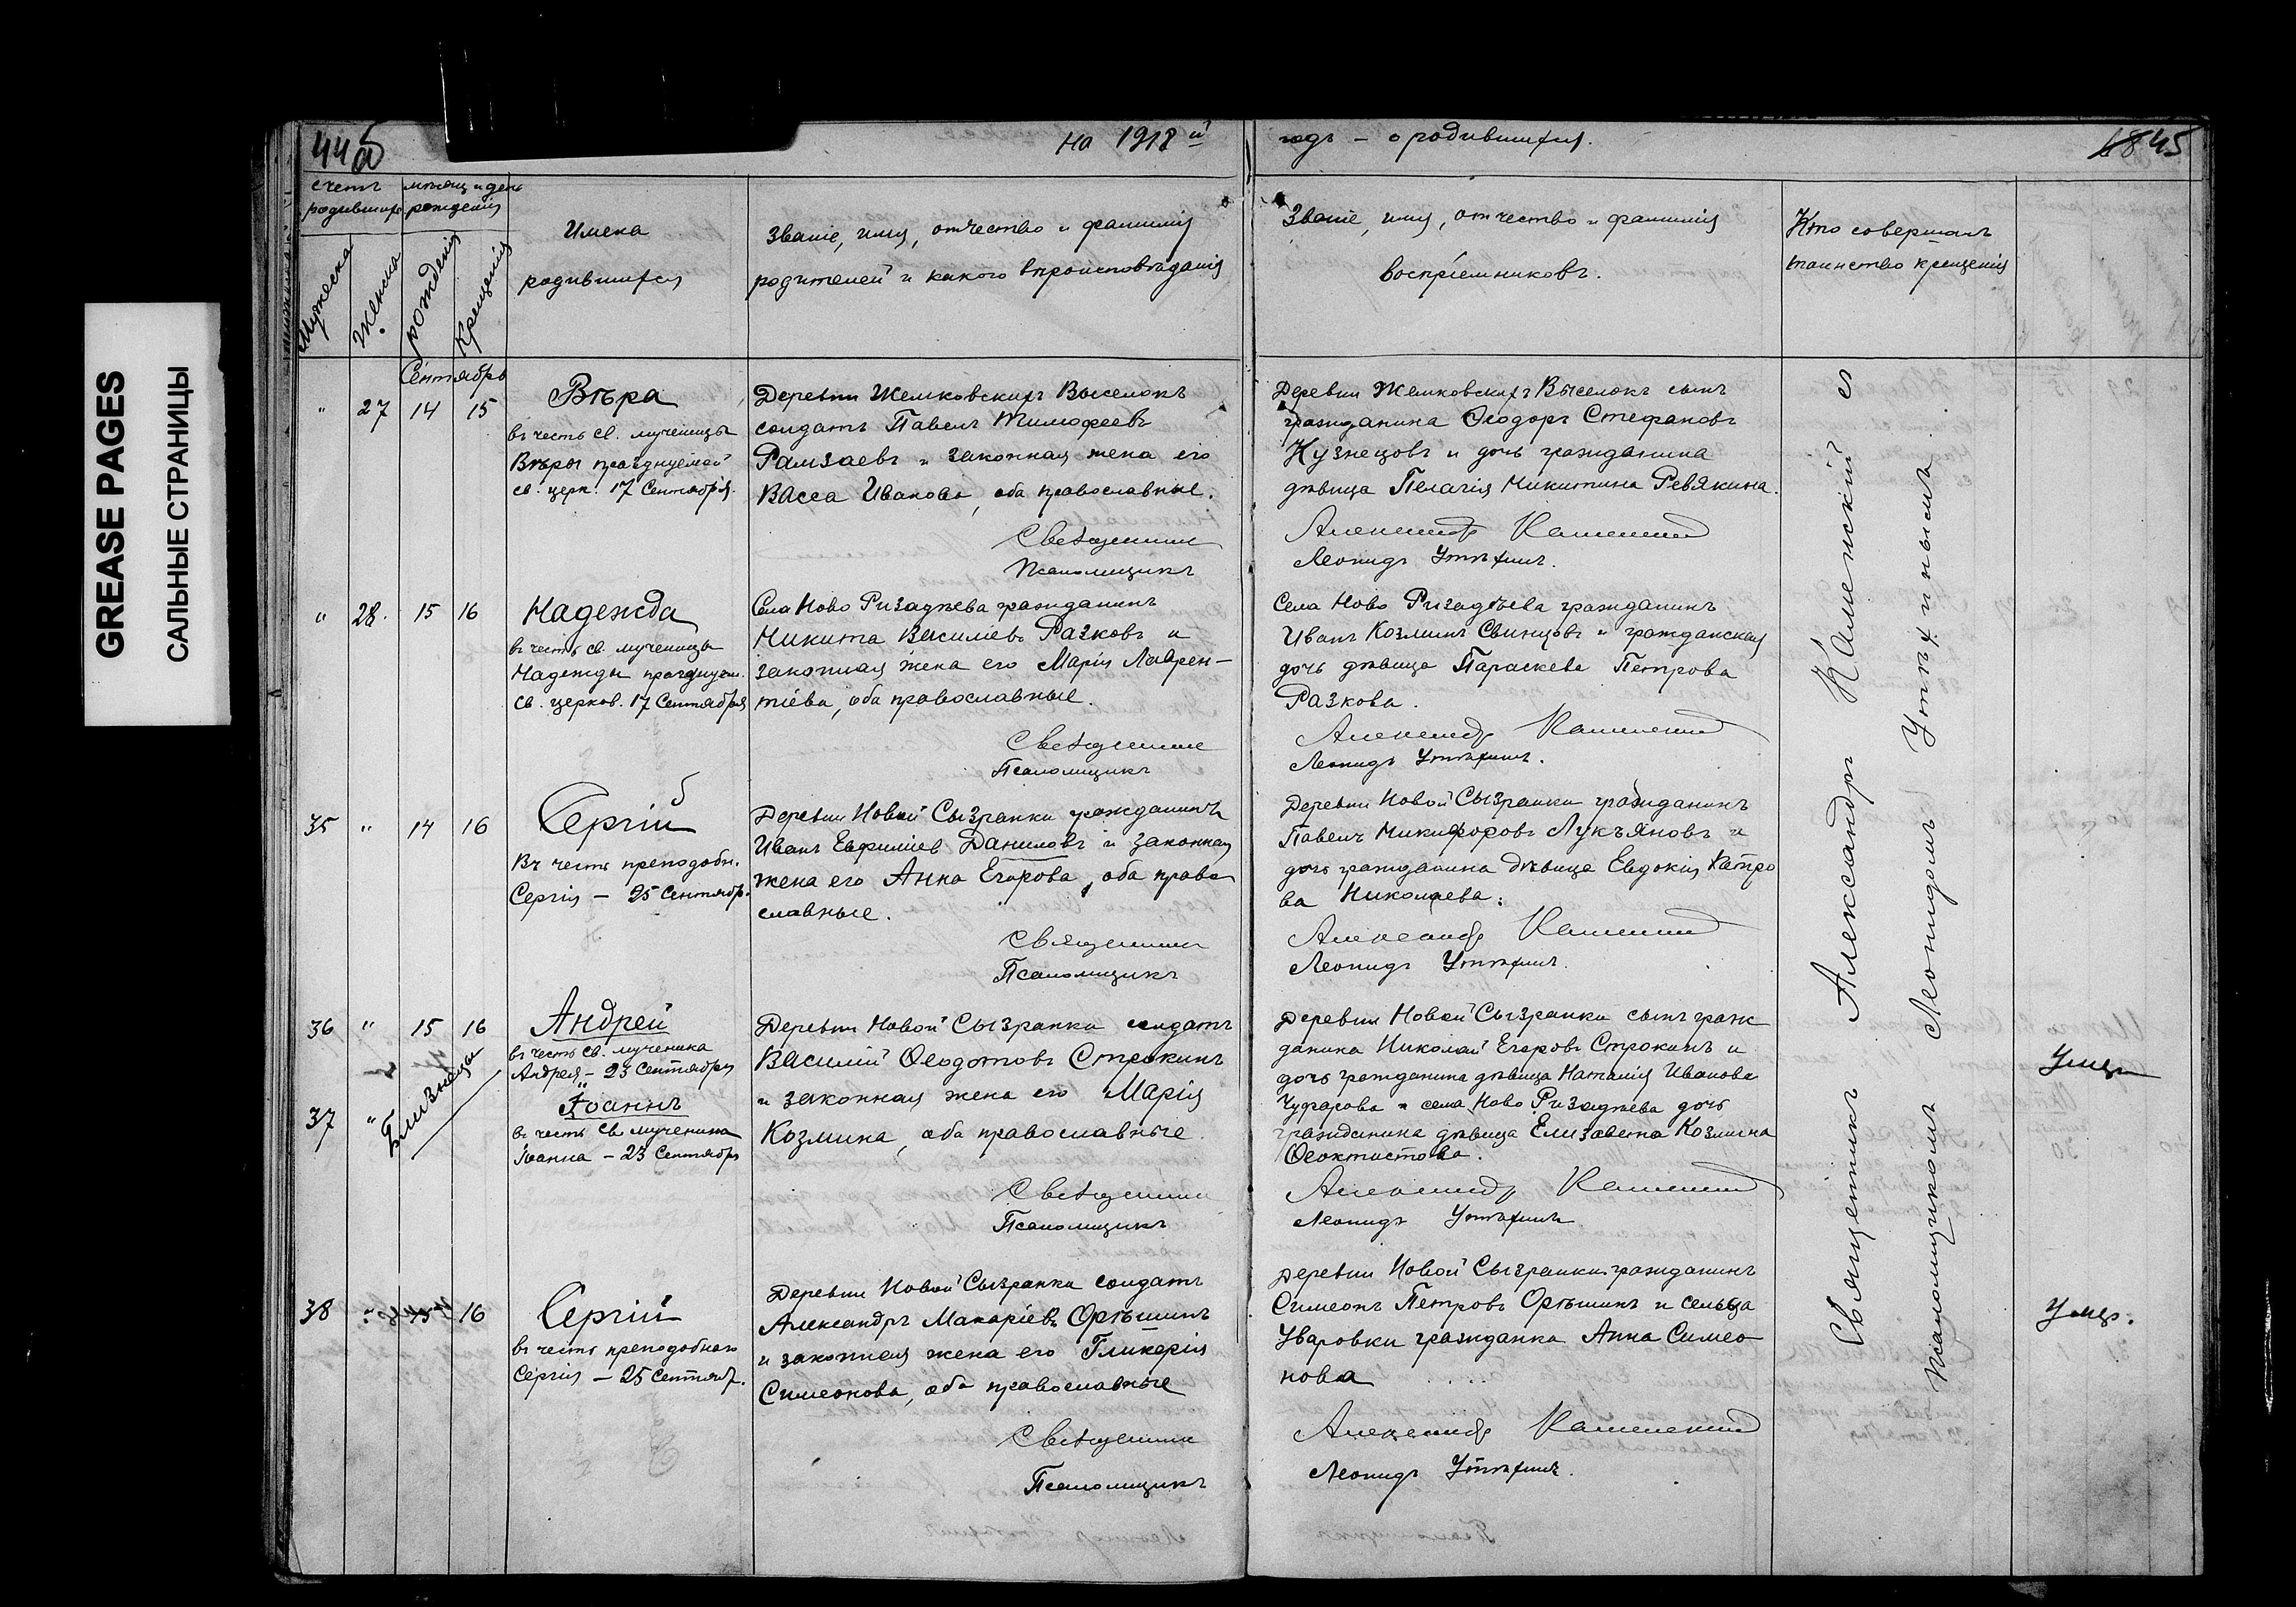 GREASE PAGES
САЛЬНЫЕ СТРАНИЦЫ
44 об
На 1918 й
годъ – о родившихся.
45
счетъ родившихся
мѣсяц и день рожденія
Мужеска
Женска
рожденія
Крещенія
Имена
родившихся
Званіе, имя, отчество и фамилія
родителей и какого вѣроисповѣданія
Званіе, имя, отчество и фамилія
воспріемниковъ.
Кто совершалъ
таинство крещенія
Сентябрь
" 27 14 15
Вѣра
въ честь св. мученицы
Вѣры празднуемой
св. церк. 17 Сентября.
Деревни Жемковскихъ Выселокъ
солдатъ Павелъ Тимофеевъ
Рамзаевъ и законная жена его
Васса Иванова, оба православные.
Священникъ
Псаломщикъ
Деревни Жемковскихъ Выселокъ сынъ
гражданина Ѳеодоръ Стефановъ
Кузнецовъ и дочь гражданина
дѣвица Пелагія Никитина Ревякина.
Александръ Каменскій
Леонидъ Утѣхинъ.
" 28. 15 16
Надежда
въ честь св. мученицы
Надежды празднуем.
св. церков. 17 Сентября
Села Ново Ризадѣева гражданинъ
Никита Василіевъ Разковъ и
законная жена его Марія Лаврен-
тіева, оба православные.
Священникъ
Псаломщикъ
Села Ново Ризадѣева гражданинъ
Иванъ Козминъ Свинцовъ и гражданская
дочь дѣвица Параскева Петрова
Разкова.
Александръ Каменскій
Леонидъ Утѣхинъ.
35 " 14 16
Сергій
Въ честь преподобн.
Сергія – 25 Сентябр.
Деревни Новой Сызранки гражданинъ
Иванъ Евфиміев Даниловъ и законная
жена его Анна Егорова, оба право
славные.
Священникъ
Псаломщикъ
Деревни Новой Сызранки гражданинъ
Павелъ Никифоровъ Лукъяновъ и
дочь гражданина дѣвица Евдокія
ва Николаева.
Александръ Каменскій
Леонидъ Утѣхинъ.
36 " 15 16
Андрей
въ честь св. мученика
Андрея – 23 Сентября
Близнецы
37 "
Іоаннъ
въ честь св. мученика
Іоанна – 23 Сентябр
Деревни Новой Сызранки солдатъ
Василій Ѳеодотовъ Строкинъ
и законная жена его Марія
Козмина, оба православные
Священникъ
Псаломщикъ
Деревни Новой Сызранки сынъ граж
данина Николай Егоровъ Строкинъ и
дочь гражданина дѣвица Наталія Иванова
Чуфарова и села Ново Ризадѣева дочь
гражданина дѣвица Елизавета Козмина
Ѳеоктистова.
Александръ Каменскій
Леонидъ Утѣхинъ
Умер
38 " 15 16
Сергій
въ честь преподобнаго
Сергія – 25 Сентяб.
Деревни Новой Сызранки солдатъ
Александръ Макаріевъ Орѣшинъ
и законная жена его Гликерія
Симеонова, оба православные
Священникъ
Псаломщикъ
Деревни Новой Сызранки гражданинъ
Симеонъ Петровъ Орѣшинъ и сельца
Уваровки гражданка Анна Симео
нова
Александръ Каменскій
Леонидъ Утѣхинъ.
Умер.
Священникъ Александръ Каменскій съ
псаломщикомъ Леонидомъ Утѣхинымъ.